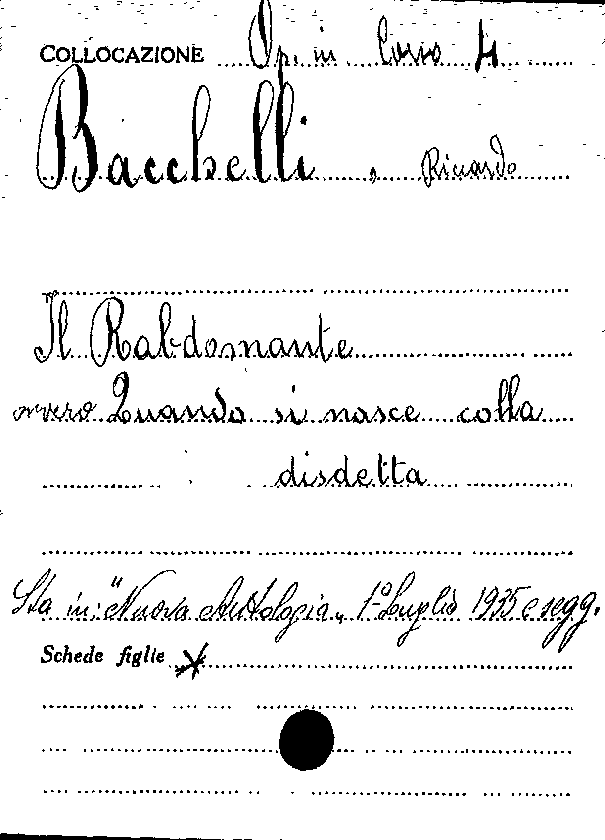 COLLOCAZIONE Op. in Corso 4
Bacchelli, Riccardo
Il Rabdomante
ovvero Quando si nasce colla
disdetta
Sta in: "Nuova Antologia„ 1º Luglio 1935 e segg.
Schede figlie